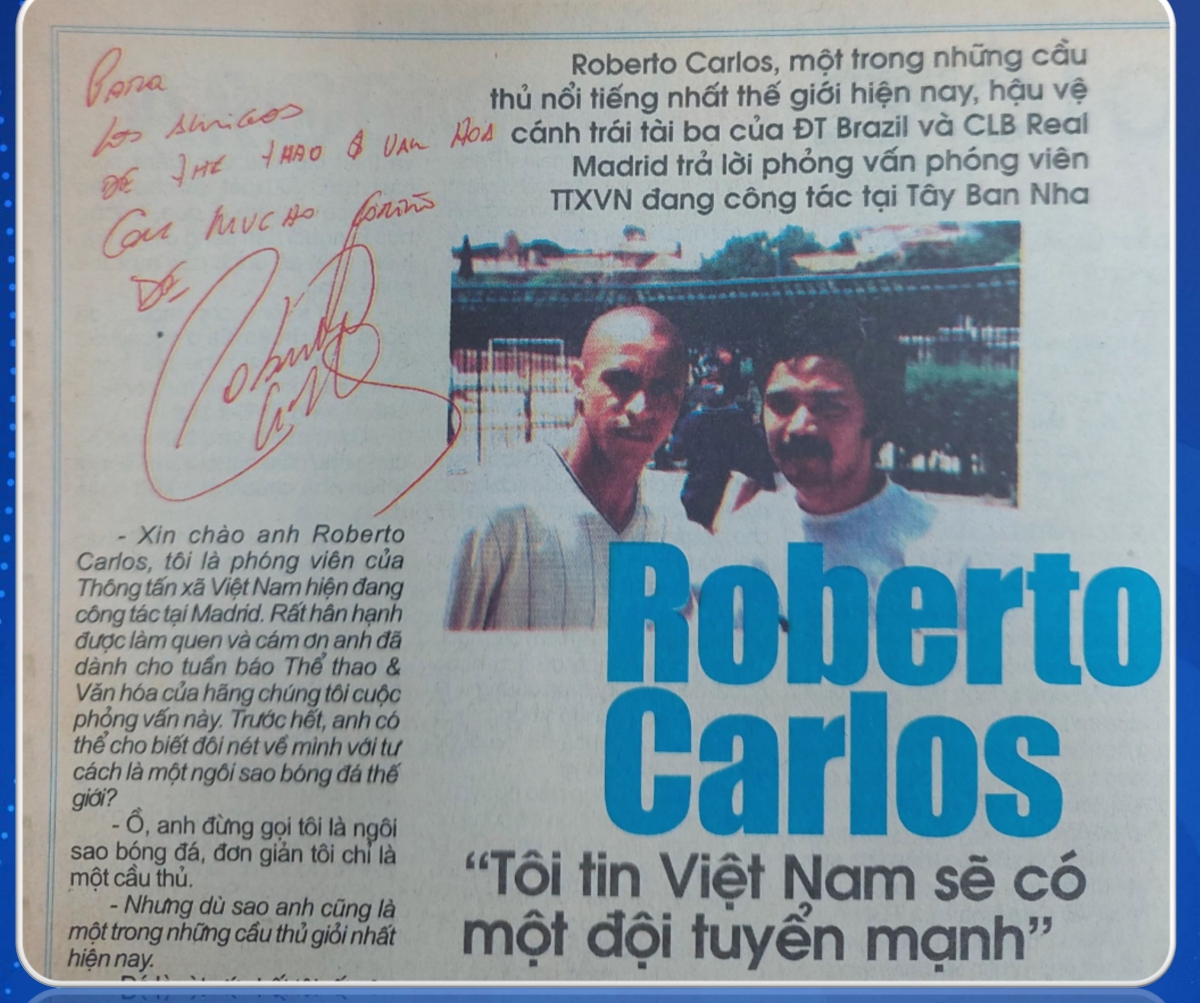 Para
Los Amigos
DE THE THAO & VAN HOA
Con MUCHO Cariño
DE
Roberto
Carlos
Roberto Carlos, một trong những cầu
thủ nổi tiếng nhất thế giới hiện nay, hậu vệ
cánh trái tài ba của ĐT Brazil và CLB Real
Madrid trả lời phỏng vấn phóng viên
TTXVN đang công tác tại Tây Ban Nha
- Xin chào anh Roberto
Carlos, tôi là phóng viên của
Thông tấn xã Việt Nam hiện đang
công tác tại Madrid. Rất hân hạnh
được làm quen và cám ơn anh đã
dành cho tuần báo Thể thao &
Văn hóa của hãng chúng tôi cuộc
phỏng vấn này. Trước hết, anh có
thể cho biết đôi nét về mình với tư
cách là một ngôi sao bóng đá thế
giới?
- Ồ, anh đừng gọi tôi là ngôi
sao bóng đá, đơn giản tôi chỉ là
một cầu thủ.
- Nhưng dù sao anh cũng là
một trong những cầu thủ giỏi nhất
hiện nay.
Roberto
Carlos
“Tôi tin Việt Nam sẽ có
một đội tuyển mạnh”